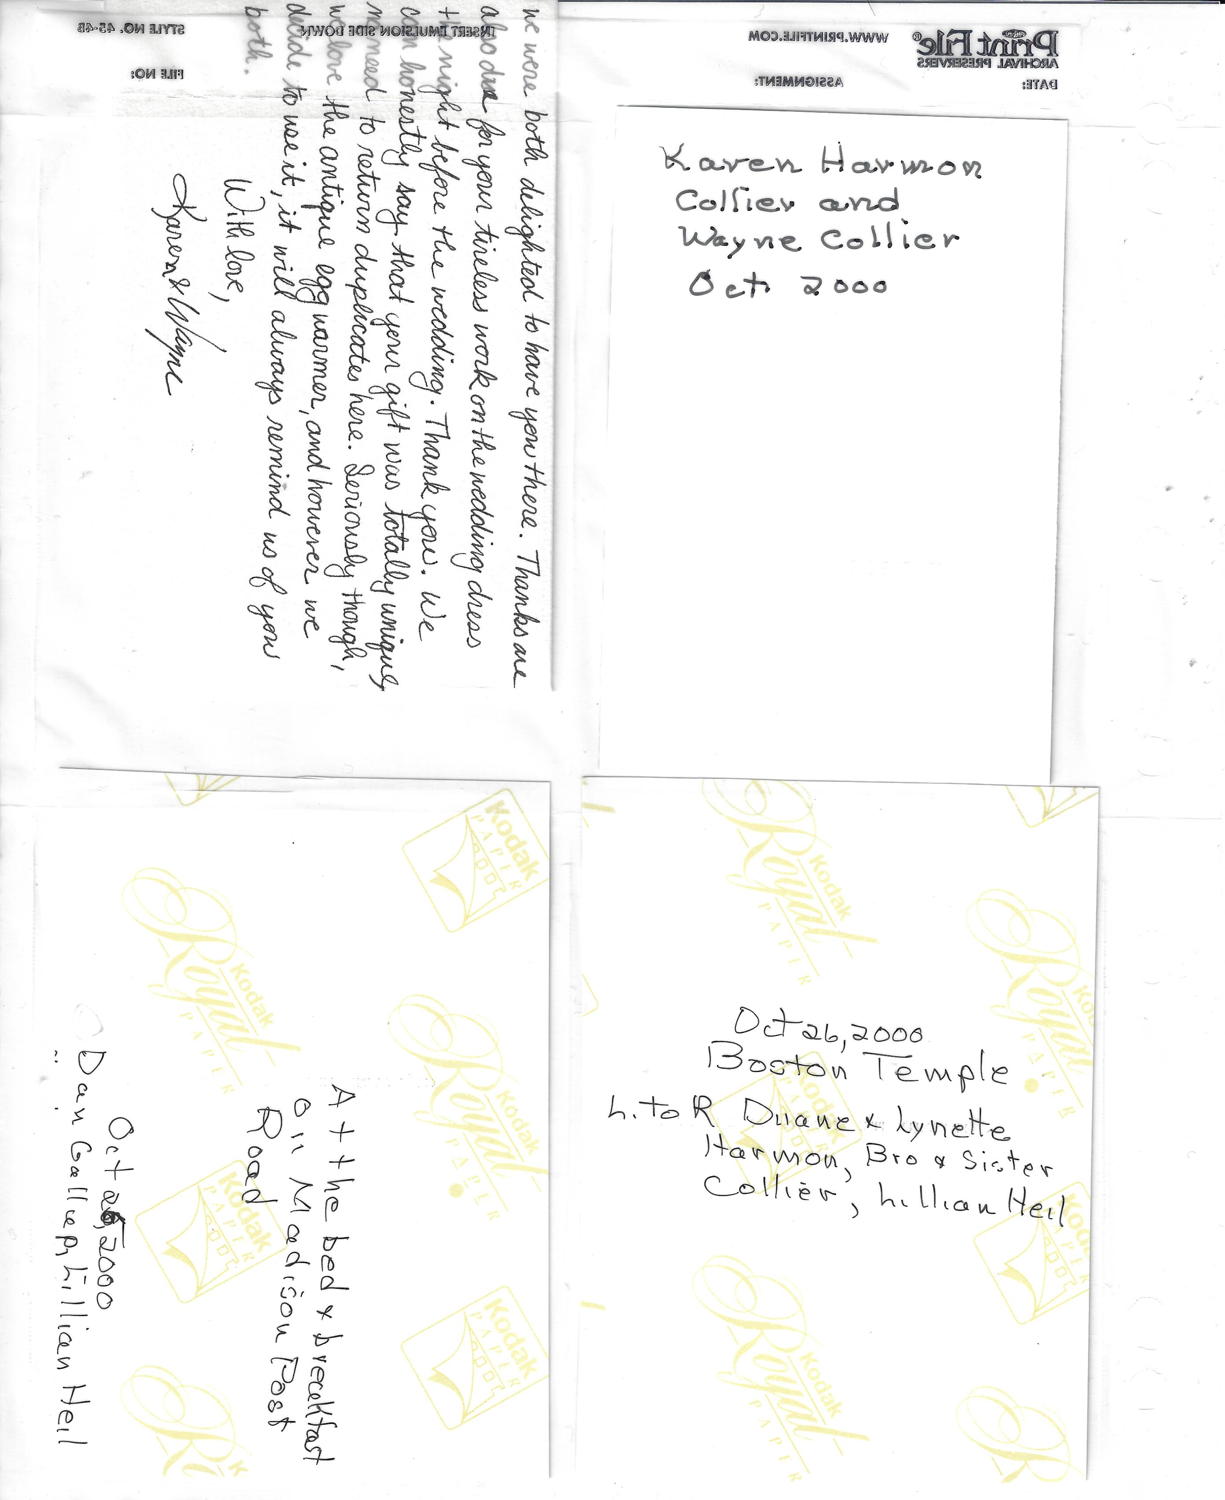 STYLE NO. 45-4B
INSERT EMULSION SIDE DOWN
WWW.PRINTFILE.COM
Print File®
ARCHIVAL PRESERVERS
FILE NO:
ASSIGNMENT:
DATE:
we were both delighted to have you there. Thanks are
also due for your tireless work on the wedding dress
the night before the wedding. Thank you. We
can honestly say that your gift was totally unique,
no need to return duplicates here. Seriously though,
we love the antique egg warmer, and however we
decide to use it, it will always remind us of you
both.
With love,
Karen & Wayne
Karen Harmon
Collier and
Wayne Collier
Oct. 2000
At the bed & breakfast
on Madison Post
Road
Oct 26, 2000
Dan Gallup, Lillian Heil
Kodak
PAPER
Kodak
Royal
PAPER
Oct 26, 2000
Boston Temple
L. to R Duane & Lynette
Harmon, Bro & Sister
Collier, Lillian Heil
Kodak
Royal
PAPER